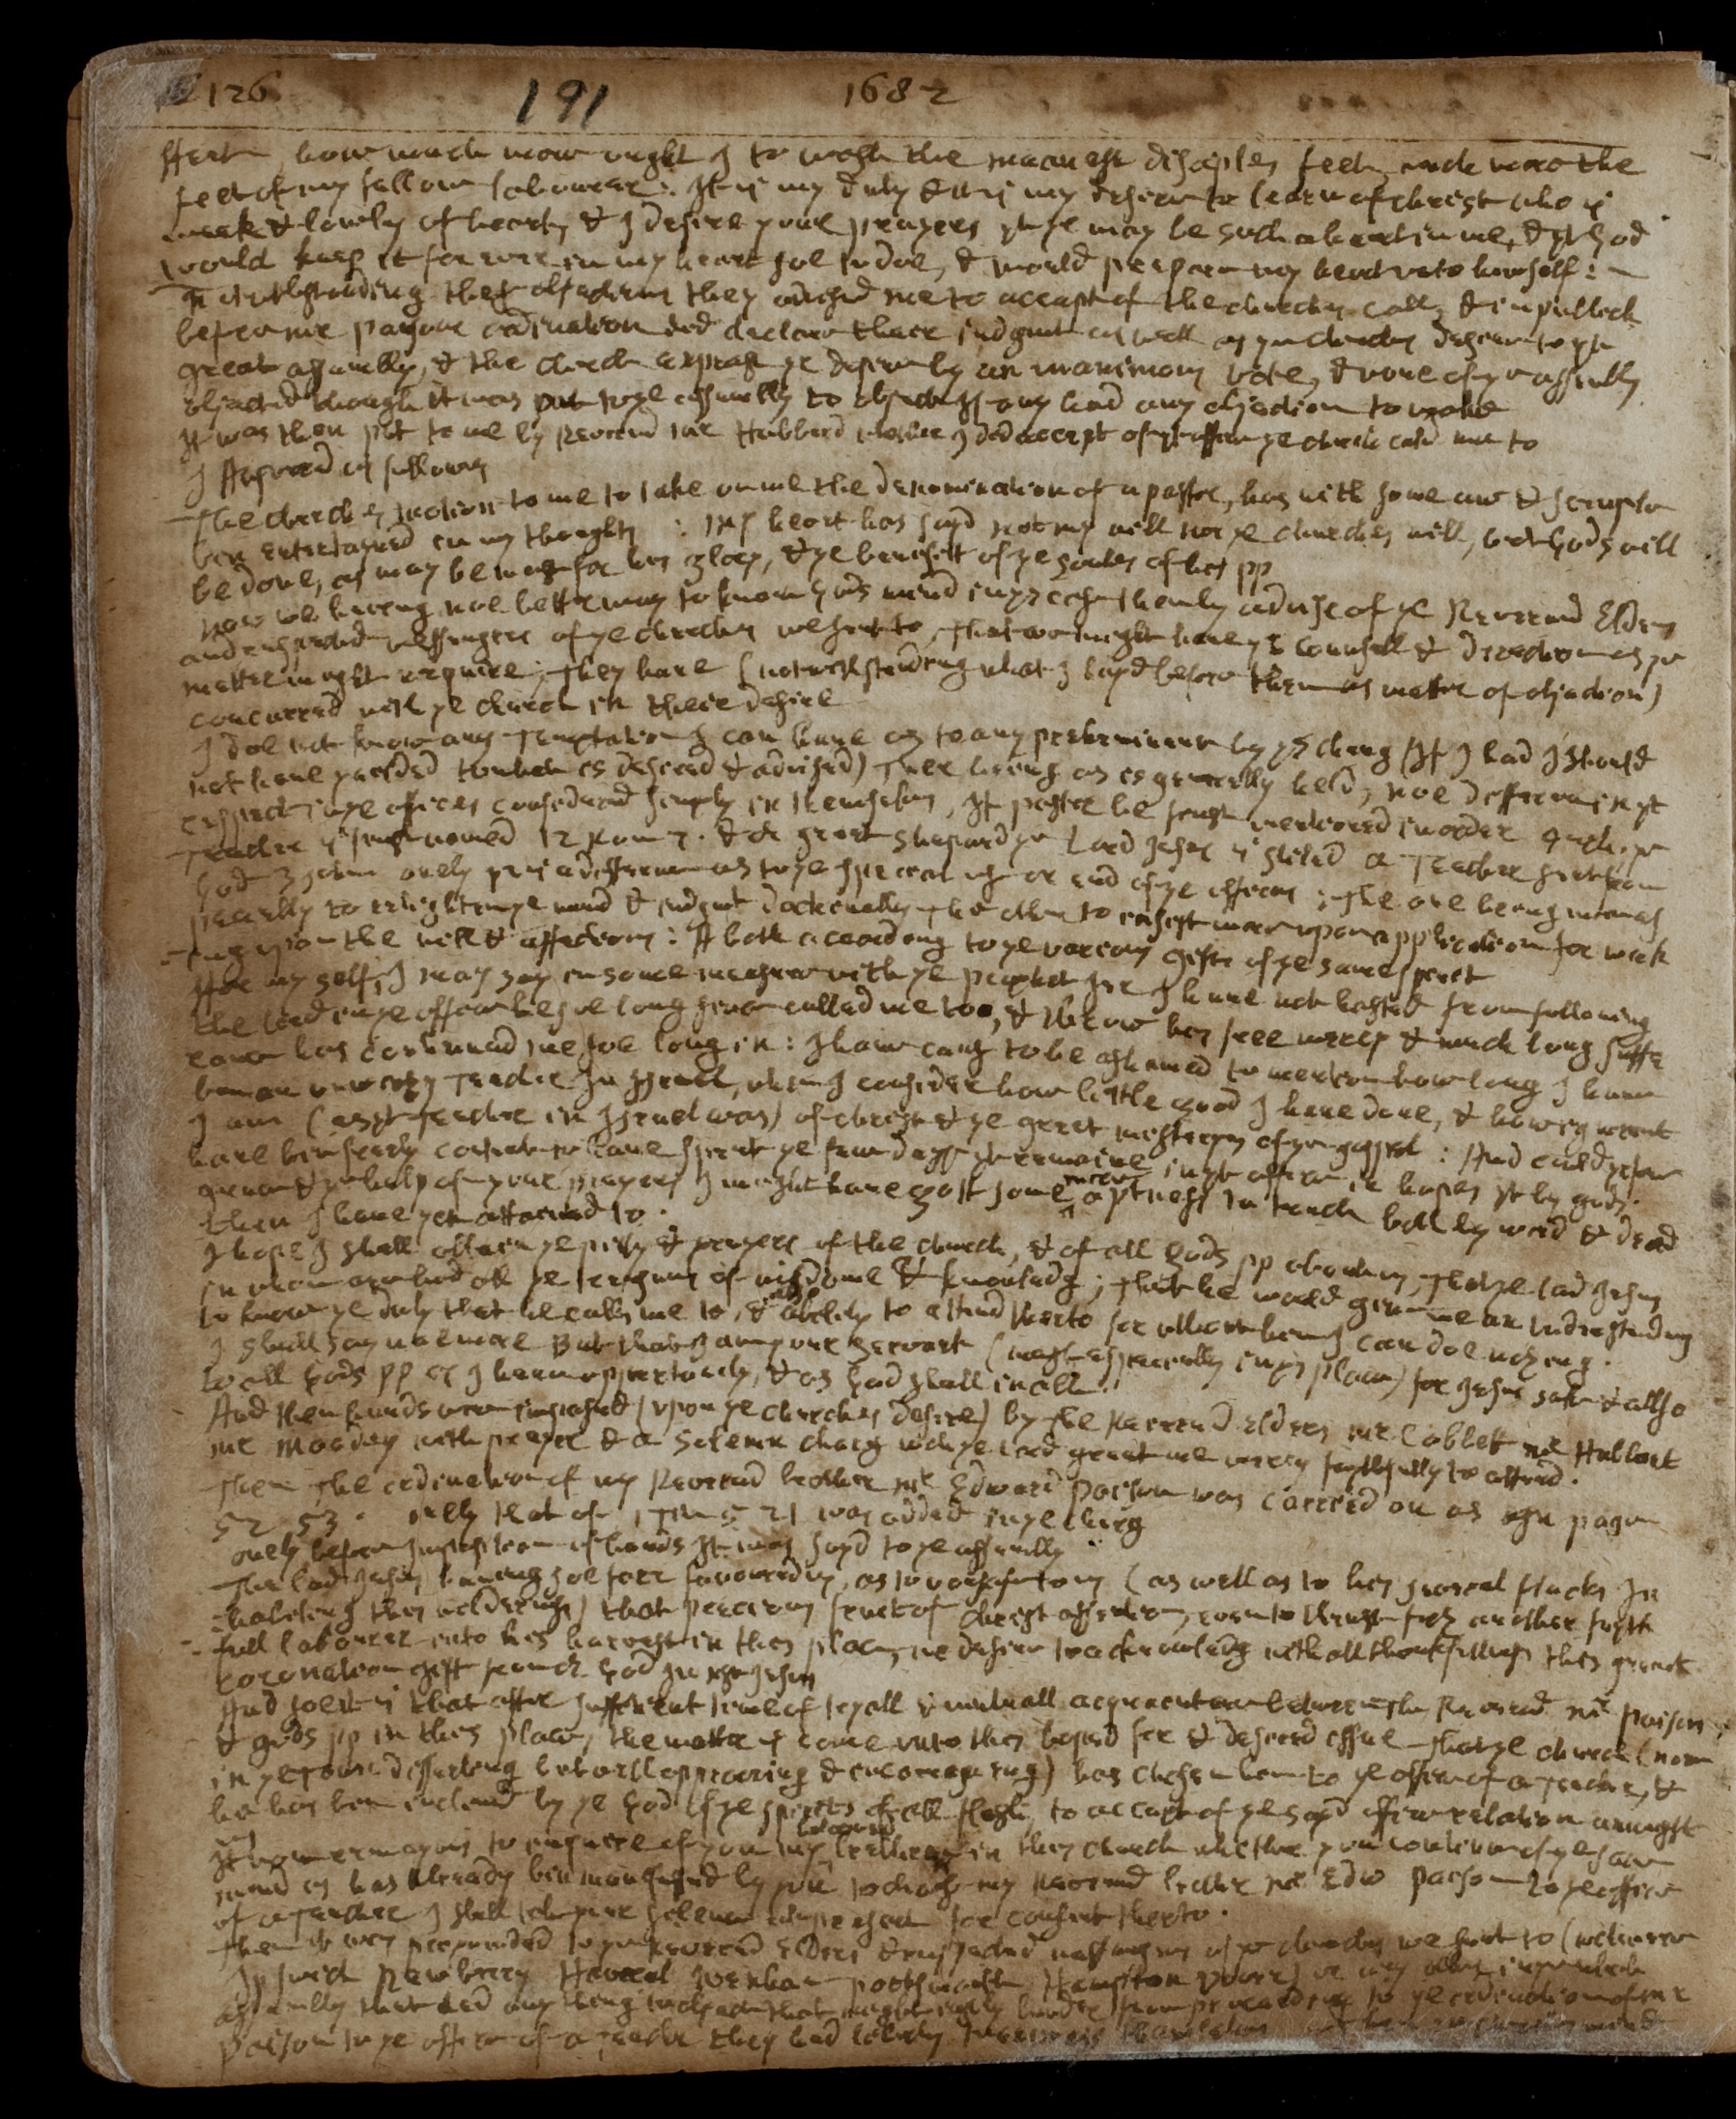 126 191 1682
feet, how much more ought I to wash the meanest disciples feet, much more the
feet of my fellow labourer: It is my duty & it is my desire to learn of christ who is
meek & lowly of heart, & I desire your prayers yt ye may be such a heart in me, & yt God
would keep it for ever in my heart soe to doe, & would prepare my heart unto himself:
notwithstanding thes objections they advised me to accept of the churches call, & in publick
before me ordination did declare their judgmt as well as ye churches desire to ye
great assembly, & the church exprest ye desire by an unanimous vote, & none of ye assembly
objected though it was put to ye assembly to object if any had any objection to make
It was then put to me by Reverend mr Hubberd whether I did accept of yt office ye church cald me to
I Answered as follows
The churches motion to me to take on me the denomination of a pastor, has with some aw & scruple
ben entertayned in my thoughts : my heart has sayd not my will nor ye churches will, but Gods will
be done, as may be most for his glory, & ye benefitt of ye soules of his pp
now we having noe better way to know gods mind in ys case then by advise of ye Reverend Elders
and respected messengers of ye churches we sent to, That we might have yr Counsell & direction as ye
matter might require; They have (notwithstanding what I layd before them as matter of objection)
concurred with ye church in their desire
I doe not know any Temptation I can have as to any preferment by ys chang (If I had I should
not have yeilded to what is desired & advised) Ther being as is generally held, noe difference in yt
respect in ye offices considered simply in themselves, If pastor be first mentioned in order Eph: ye
Teacher is first named 12 Rom 7. & ye great Shepard ye Lord Jesus is stiled a Teacher sent from
God 3 John only ther is a difference as to ye speciall use or end of ye offices ; The one being
specially to enlighten ye mind & judgmt doctrinally The other to insist more upon application for work
ing upon the will & affections: & both according to ye various gifts of ye same spirit
For my self, I may say in some measure with ye prophet Jer I have not hasted from following
the lord in ye office he soe long since called me too, & I know his free mercy & much long suffe
rance has continued me soe long in: I have caus to be ashamed to mention how long I have
ben an unworthy Teacher In Israel, when I consider how little good I have done, & how ignorant
I am (as yt Teacher in Israel was) of christ & ye great mysterys of ye gospel : And could
have ben freely content to have spent ye few days yt remaine in yt office in hopes yt by gods
grace & ye help of your prayers I might have gott some more aptness to teach both by word & deed
then I have yet attained to.
I hope I shall obtain ye pity & prayers of the church, & of all Gods pp about us, That ye lord Jesus
in whom are hid all ye treasures of wisdome & knowledg; That he would give me an understanding
to know ye duty that he calls me to, & ability to attend therto for without him I can doe nothing.
I shall say noe more But that I am your Servant (most especially in ys place) for Jesus sake & allso
to all Gods pp as I have oppertunity, & as God shall inable.
And then hands were imposed (upon ye churches desire) by the Reverend Elders mr Cobbet mr Hubbert
mr Moodey with prayer & a Solemn charg which ye lord grant me mercy faythfully to attend.
Then The ordination of my Reverend brother mr Edward Paison was Carried on as see page
52 53. only that of 1 Tim 5 21 was added in ye charg
only before Imposition of hands it was sayd to ye assembly
The lord Jesus having soe farr favoured us, as to vouchsafe to us (as well as to his severall flocks In
habiting this wildernes) that pretious fruit of christs assention, even to thrust forth another fayth
full labourer into his harvest in this place, we desire to acknowledg with all thankfullnes this great
Coronation gift from Ch: God In Jesus
And soe it is that after sufficient time of tryall & mutuall acquaintance between the Reverend mr Paison
& gods pp in this place, the matter is come unto this hoped for & desired issue That ye church (now
in ye round assembling both appeering & incouraging) has chosen him to ye office of a Teacher, &
he has ben inclined by ye God of ye spirits of all flesh, to accept of ye sayd office relation amongst
us
It now remayns to enquire of you my beloved brethren in this church whether you continue of ye same
mind as has Already ben manifested by you to chose my Reverend brother mr Edw Paison to ye office
of a Teacher I shall take your silence at present for consent therto.
Then it was propounded to ye Reverend Elders & respected messengers of ye churches we sent to (which were
Ipswich Newberry Haveril Wenham portsmouth Hampton Dover) or any other in ye whole
assembly that had any thing to object that might justly hinder from proceeding to ye ordination of mr
Paison to ye office of a Teacher they had liberty to express themselves